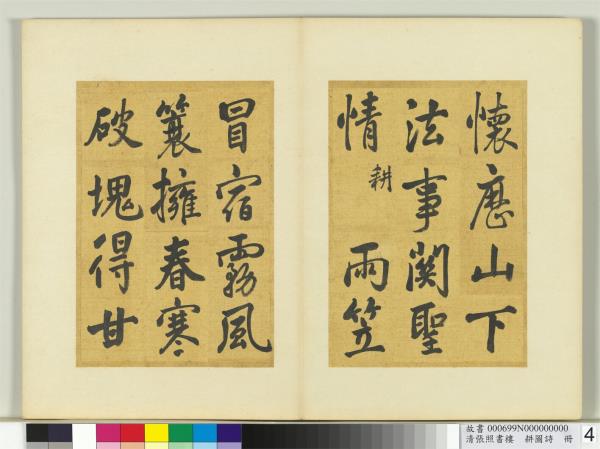 懷厯山下
法事関聖
情 耕 雨笠
冒宿霧風
簑擁春寒
破塊得甘
故書 000699N000000000
清張照書樓 耕圖詩 冊
4